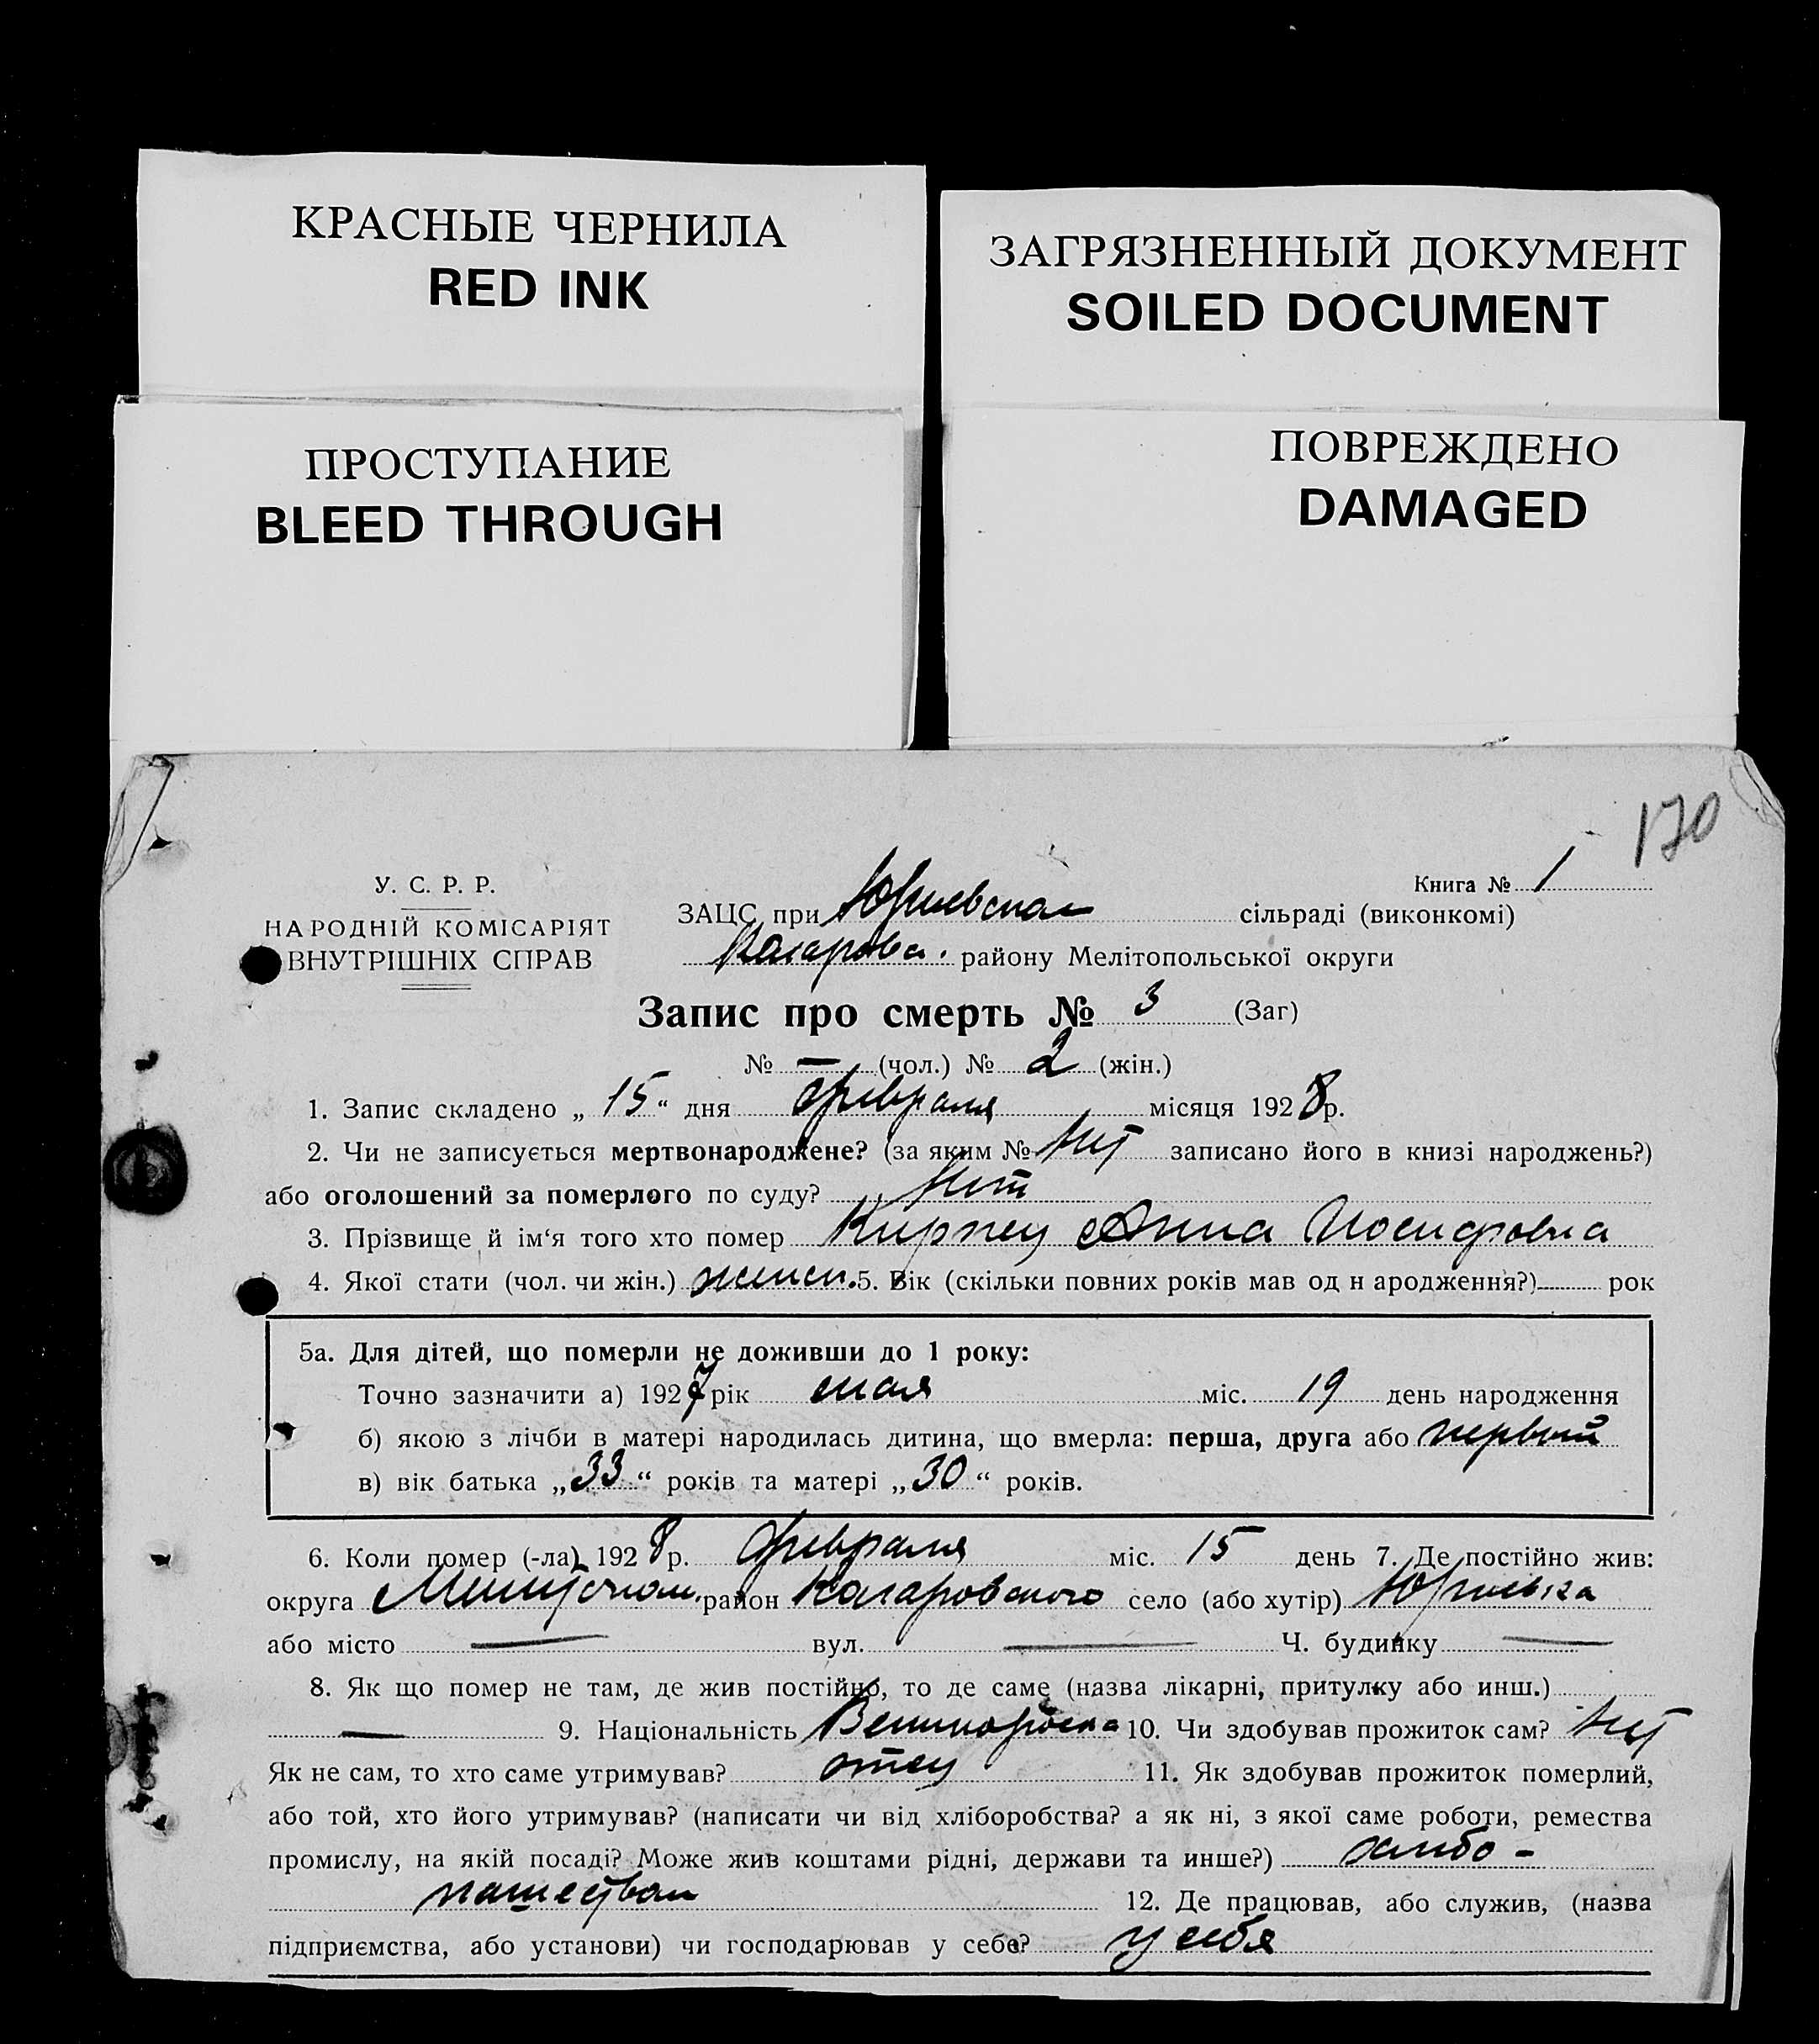 КРАСНЫЕ ЧЕРНИЛА
RED INK
ЗАГРЯЗНЕННЫЙ ДОКУМЕНТ
SOILED DOCUMENT
ПРОСТУПАНИЕ
BLEED THROUGH
ПОВРЕЖДЕНО
DAMAGED
170
У. С. Р. Р.
НАРОДНІЙ КОМІСАРІЯТ
ВНУТРІШНІХ СПРАВ
Книга № 1
ЗАЦС при Юрьевском сільраді (виконкомі)
району Мелітопольської округи
Запис про смерть № 3 (Заг)
№ — (чол.) № 2 (жін.)
1. Запис складено „ 15 “ дня февраля місяця 1928 р.
2. Чи не записується мертвонароджене? (за яким № нет записано його в книзі народжень?)
або оголошений за померлого по суду? нет
3. Прізвище й ім‘я того хто помер Анна Иосифовна
4. Якої стати (чол. чи жін.) женск. 5. Вік (скільки повних років мав од н ародження?) рок
5а. Для дітей, що померли не доживши до 1 року:
Точно зазначити а) 1927 рік мая міс. 19 день народження
б) якою з лічби в матері народилась дитина, що вмерла: перша, друга або первый
в) вік батька „ 33 “ років та матері „ 30 “ років.
6. Коли помер (-ла) 1928 р. февраля міс. 15 день 7. Де постійно жив:
округа Мелитопол. район село (або хутір) Юрьевка
або місто — вул. — Ч. будинку —
8. Як що помер не там, де жив постійно, то де саме (назва лікарні, притулку або инш.)
— 9. Національність 10. Чи здобував прожиток сам? нет
Як не сам, то хто саме утримував? отец 11. Як здобував прожиток померлий,
або той, хто його утримував? (написати чи від хліборобства? а як ні, з якої саме роботи, ремества
промислу, на якій посаді? Може жив коштами рідні, держави та инше?) хлебо-
пашеством 12. Де працював, або служив, (назва
підприємства, або установи) чи господарював у себе? у себя